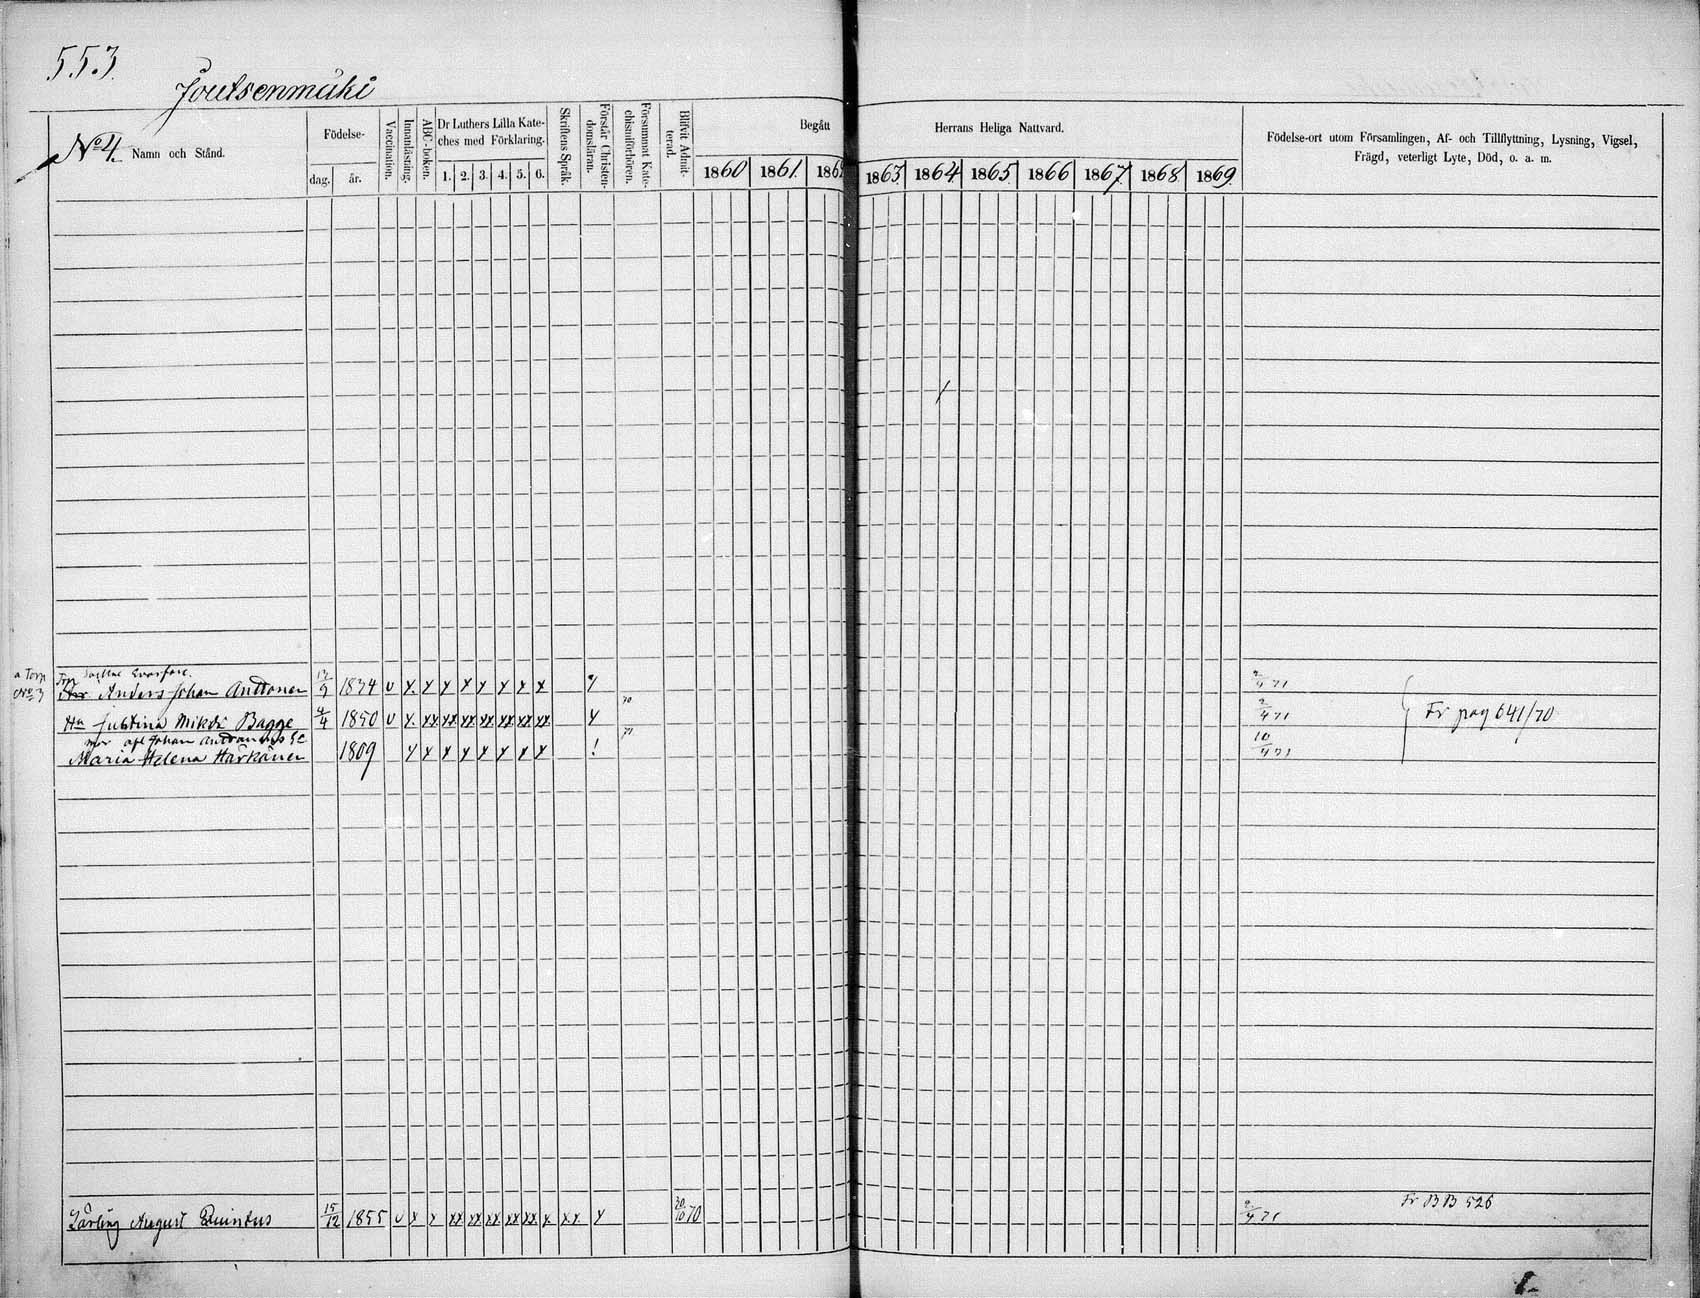 553.
Joutsenmäki
No 4. Namn och Stånd.
Födelse-
dag. år.
Vaccination.
Innanläsning.
ABC-boken.
Dr Luthers Lilla Kate-
ches med Förklaring.
1. 2. 3. 4. 5. 6.
Skriftens Språk.
Förstår Christen-
domsläran.
Försummat Kate-
chismiförhören.
Blifvit Admit-
terad.
Begått Herrans Heliga Nattvard.
1860 1861. 1862 1863. 1864 1865. 1866 1867. 1868 1869.
Födelse-ort utom Församlingen, Af- och Tillflyttning, Lysning, Vigsel,
Frägd, veterligt Lyte, Död, o. a. m.
a Torp
No 3
Anders Johan Anttonen 1834 v x. x x x x x x x 2/4 71
70
Hu Justina Mikdr Bagge 4/4 1850 v x. xx xx xx xx xx xx xx 2/4 71
Fr pag 641/70
71
mor afl Johan
Maria Helena Härkänen 1809 x x x x x x x x ! 10/4 71
Lärling August Quintus 15/12 1855 v x x xx xx xx xx xx x. x.x. x 30/10 70 2/4 71
Fr BB 526